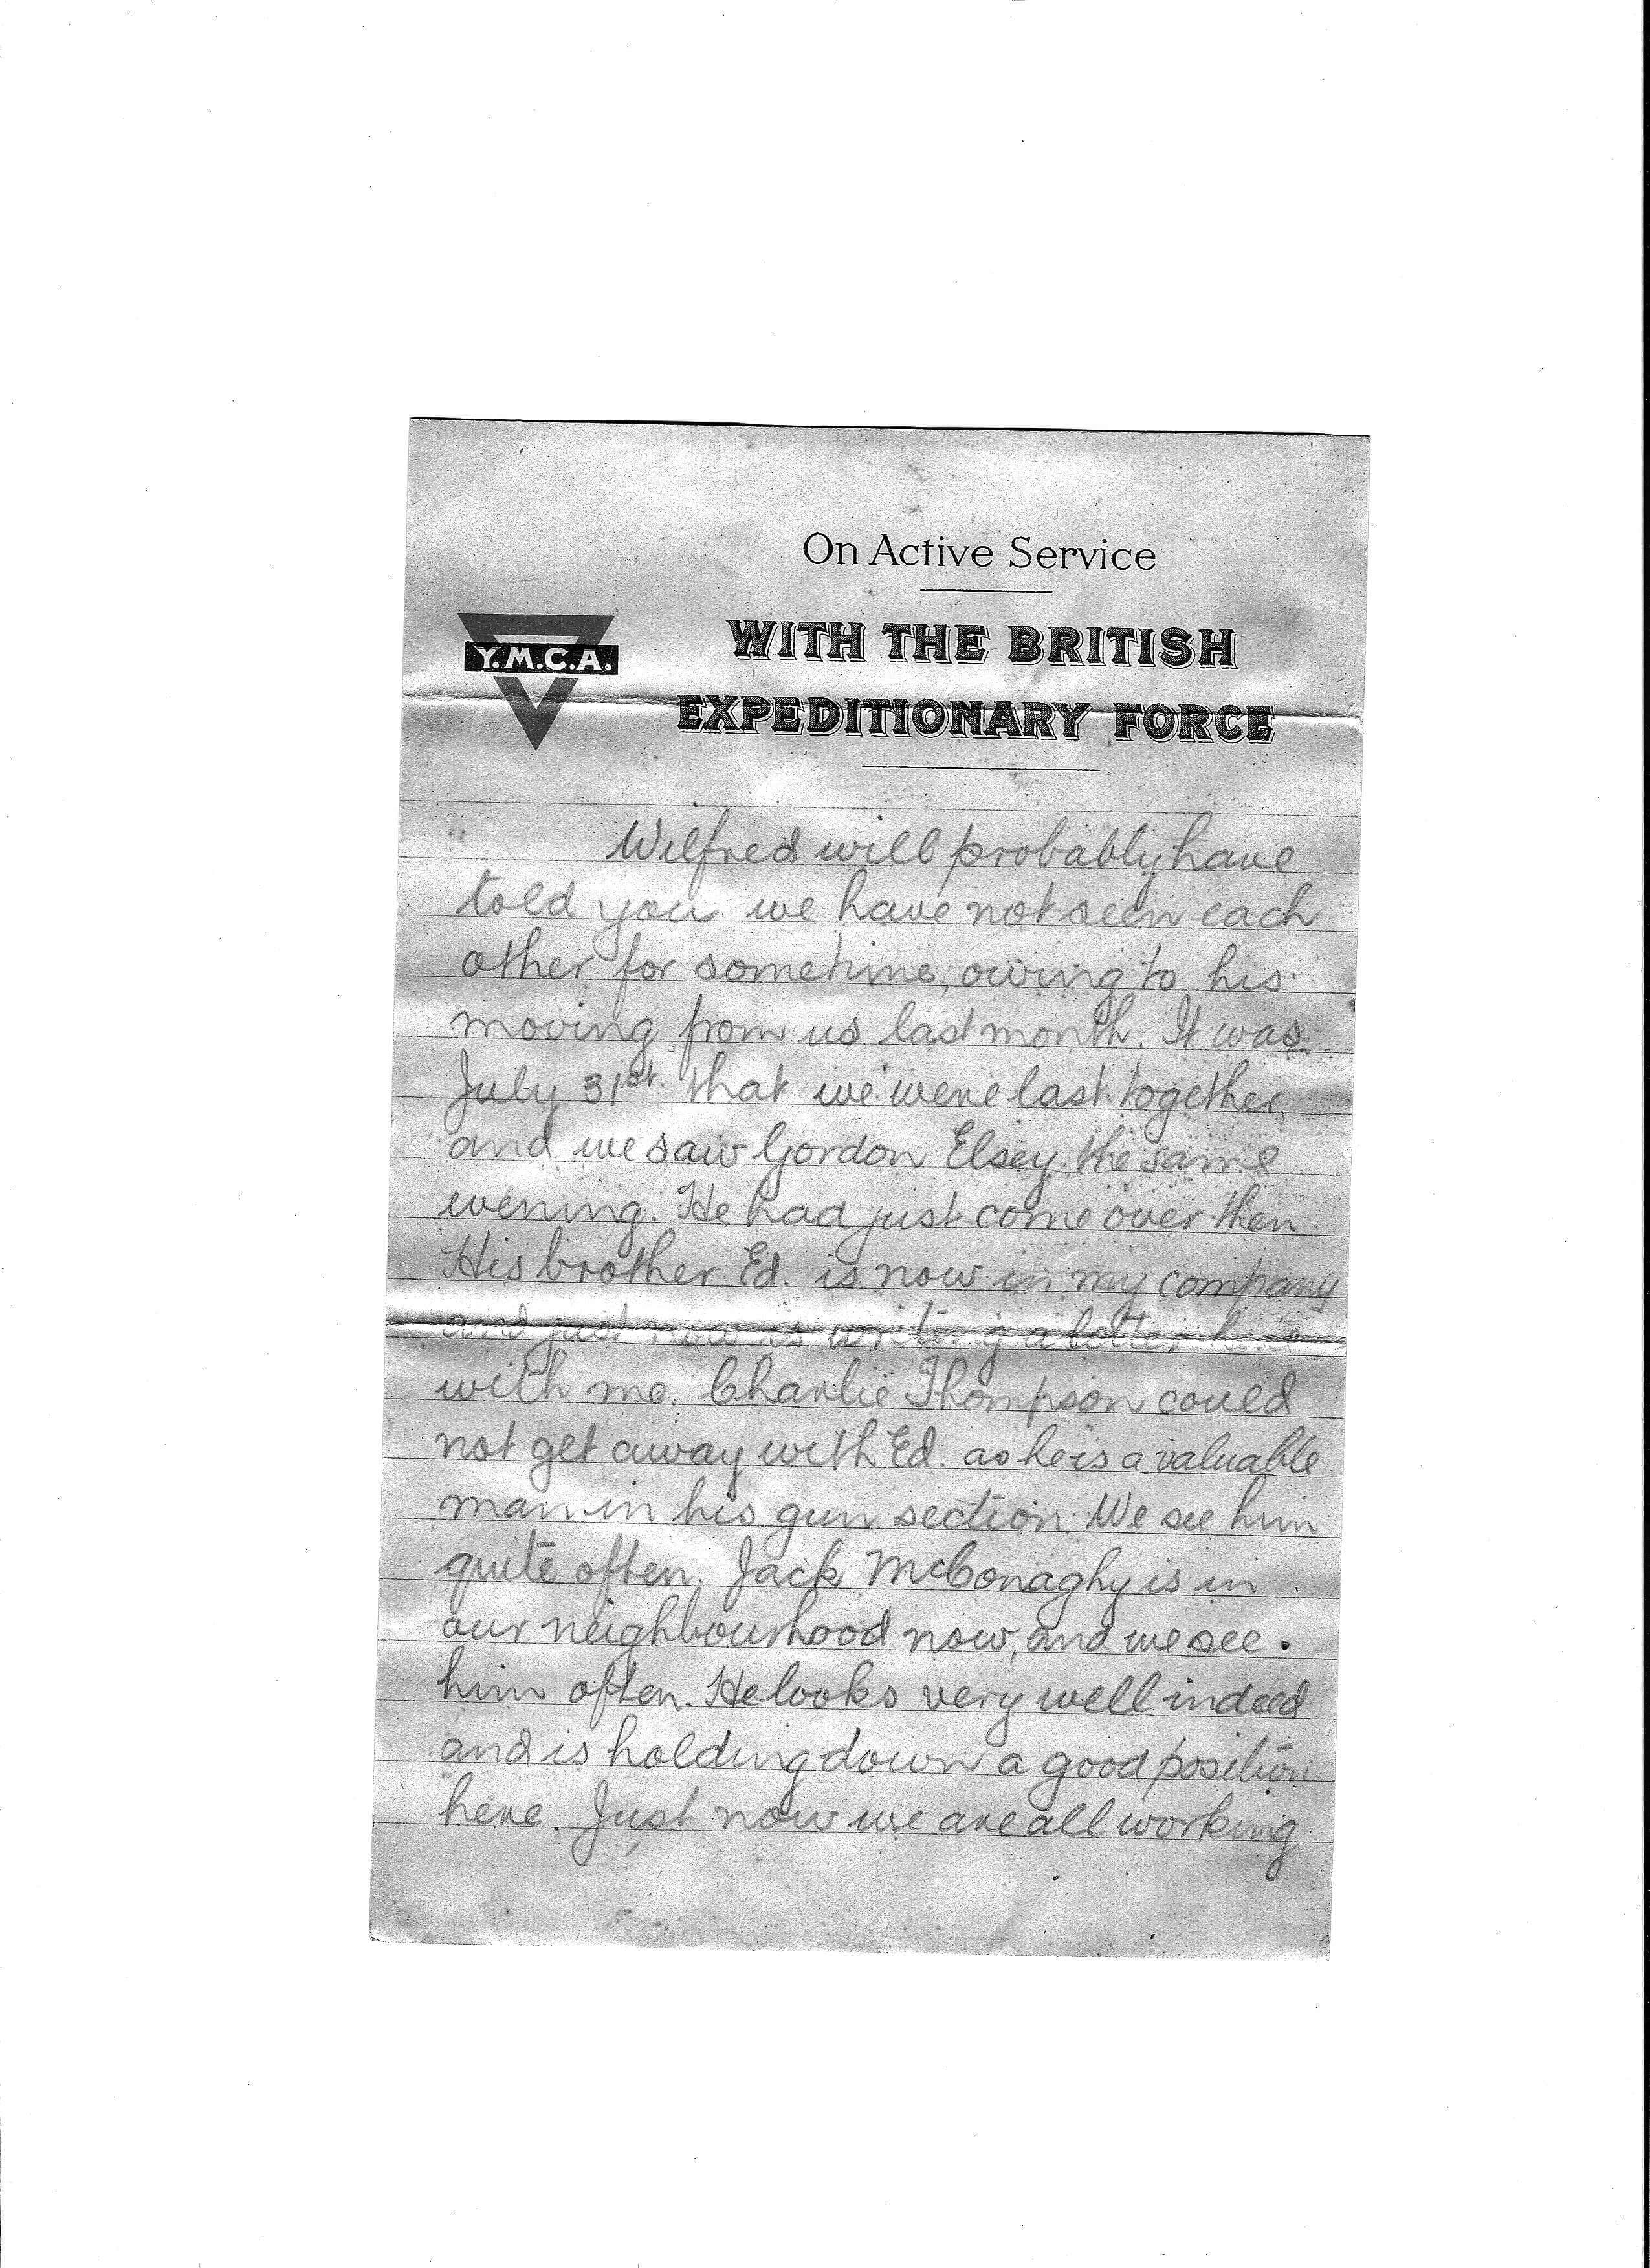 On Active Service
Y.M.C.A.
WITH THE BRITISH
EXPEDITIONARY FORCE
Wilfred will probably have
told you we have not seen each
other for sometime, owing to his
moving from us last month. It was
July 31st. that we were last together,
and we saw Gordon Elsey the same
evening. He had just come over then.
His brother Ed. is now in my company
and just now is writing a letter here
with me. Charlie Thompson could
not get away with Ed. as he is a valuable
man in his gun section. We see him
quite often. Jack McConaghy is in
our neighbourhood now, and we see
him often. He looks very well indeed
and is holding down a good position
here. Just now we are all working